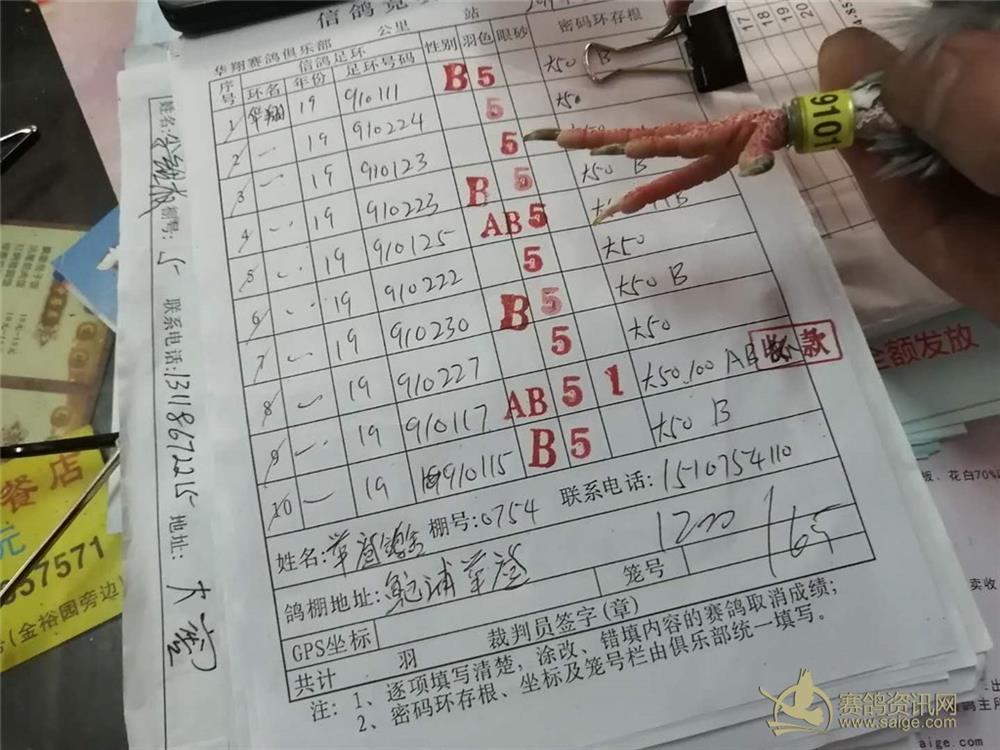 信鸽竞
华翔赛鸽俱乐部 公里 站
序号 信鸽足环 性别 羽色 眼砂 密码环存根
环名 年份 足环号码
1 华翔 19 910111 B 5 大50 B
2 〃 19 910224 5 大50
3 〃 19 910123 5
4 〃 19 910223 B 5 大50 B
5 〃 19 910125 AB 5
6 〃 19 910222 5 大50
7 〃 19 910230 B 5 大50 B
8 〃 19 910227 5 大50
9 〃 19 910117 AB 5 1 大50.100 AB
10 〃 19 910115 B 5 大50 B
收款
姓名: 棚号:0754 联系电话:1510754110
鸽棚地址: 笼号 1200
GPS坐标 裁判员签字(章)
共计 羽
注: 1、逐项填写清楚，涂改、错填内容的赛鸽取消成绩；
2、密码环存根、坐标及笼号栏由俱乐部统一填写。
姓名: 棚号: 5 联系电话:13118672215 地址:
9101
17
18
19
20
全额发放
餐店
元
57571
(金裕园旁边)
花白70%
卖收
赛鸽资讯网
www.saige.com
aige.com